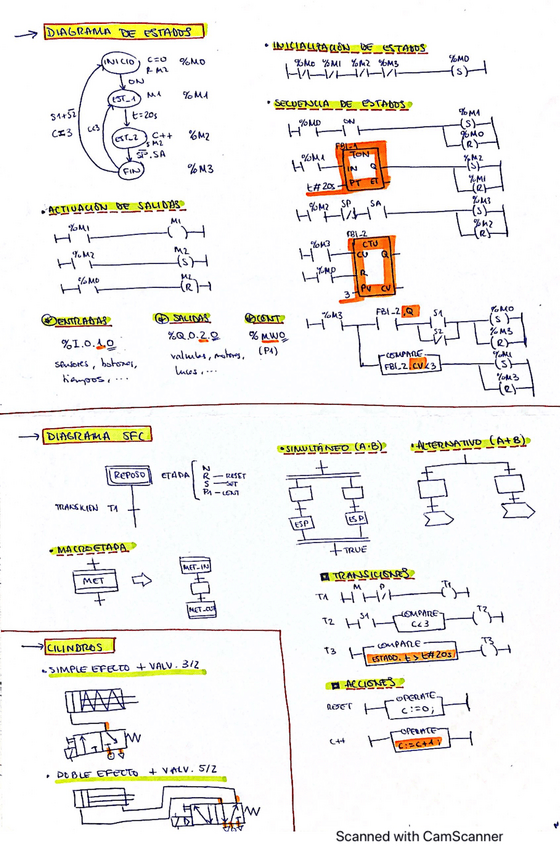 → DIAGRAMA DE ESTADOS
INICIO C=0 %M0
R M2
ON
EST_1 M1 %M1
S1+S2
C≥3
C<3
t=20s
EST_2 C++ %M2
S M2
SP.SA
FIN %M3
• ACTIVACIÓN DE SALIDAS
%M1 M1
( )
%M2 M2
(S)
%M0 M2
(R)
ENTRADAS
%I.0.1.0
sensores, botones,
tiempos, ...
SALIDAS
%Q.0.2.0
valvulas, motores,
luces, ...
CONT
%MW0
(P1)
• INICIALIZACIÓN DE ESTADOS
%M0 %M1 %M2 %M3 %M0
(S)
• SECUENCIA DE ESTADOS
%M0 ON %M1
(S)
%M0
(R)
FBI_1
%M1 TON %M2
IN Q (S)
t#20s PT ET %M1
(R)
%M2 SP SA %M3
(S)
%M2
(R)
FBI_2
%M3 CTU
CU Q
%M0 R
3 PV CV
%M3 FBI_2.Q S1 %M0
(S)
S2 %M3
(R)
COMPARE %M1
FBI_2.CV<3 (S)
%M3
(R)
→ DIAGRAMA SFC
REPOSO ETAPA N
R — RESET
S — SET
P1 — CONT
T1
• MACROETAPA
MET
MET_IN
MET_OUT
• SIMULTÁNEO (A·B)
ESP ESP
TRUE
• ALTERNATIVO (A+B)
TRANSICIONES
T1 M P T1
T2 S1 COMPARE T2
C<3
T3 COMPARE T3
ESTADO.t > t#20s
ACCIONES
RESET OPERATE
C:=0;
C++ OPERATE
C:=C+1;
→ CILINDROS
• SIMPLE EFECTO + VALV. 3/2
• DOBLE EFECTO + VALV 5/2
Scanned with CamScanner